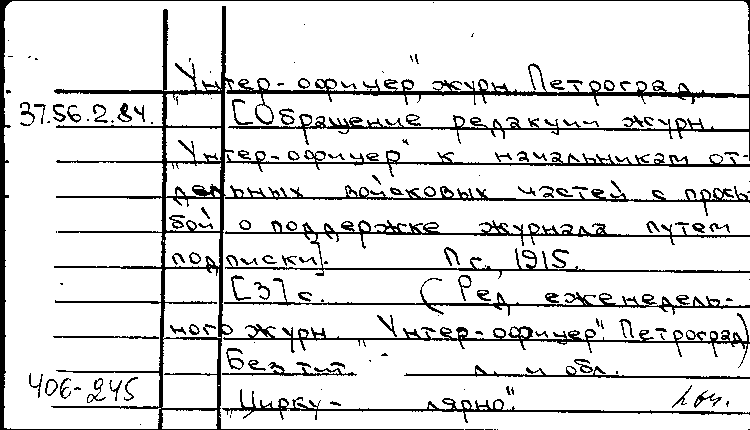 "Унтер-офицер", журн. Петроград.
37.56.2.84.
[Обращение редакции журн.
"Унтер-офицер" к начальникам от-
дельных войсковых частей с прось-
бой о поддержке журнала путем
подписки]. Пг., 1915.
[3] с. (Ред. еженедель-
ного журн. "Унтер-офицер". Петроград)
Без тит. л. и обл.
406-245
"Цирку- лярно".